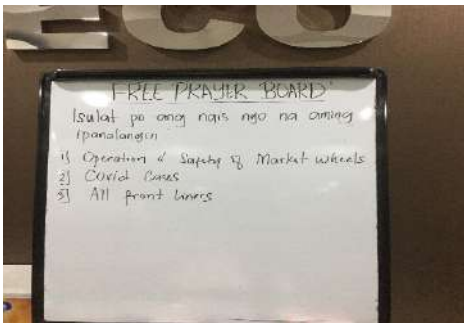 ECO
FREE PRAYER BOARD
Isulat po ang nais nyo na aming
ipanalangin
1) Operation & Safety of Market Wheels
2) Covid Cases
3) All front liners